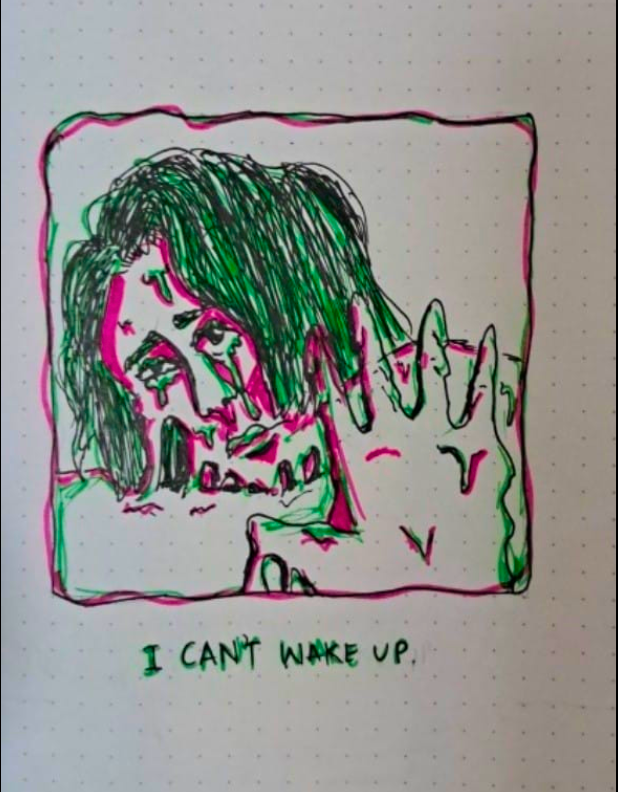 I CAN'T WAKE UP.